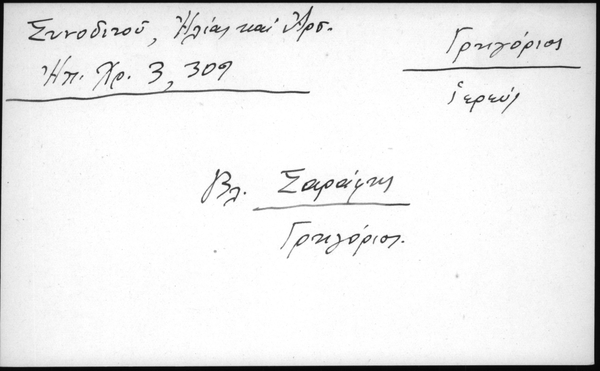 Συνοδινού, Ἠλίας καὶ Ἀρσ.
Ἠπ. Χρ. 3, 309
Γρηγόριος
ἱερεύς
Βλ. Σαράφης
Γρηγόριος.